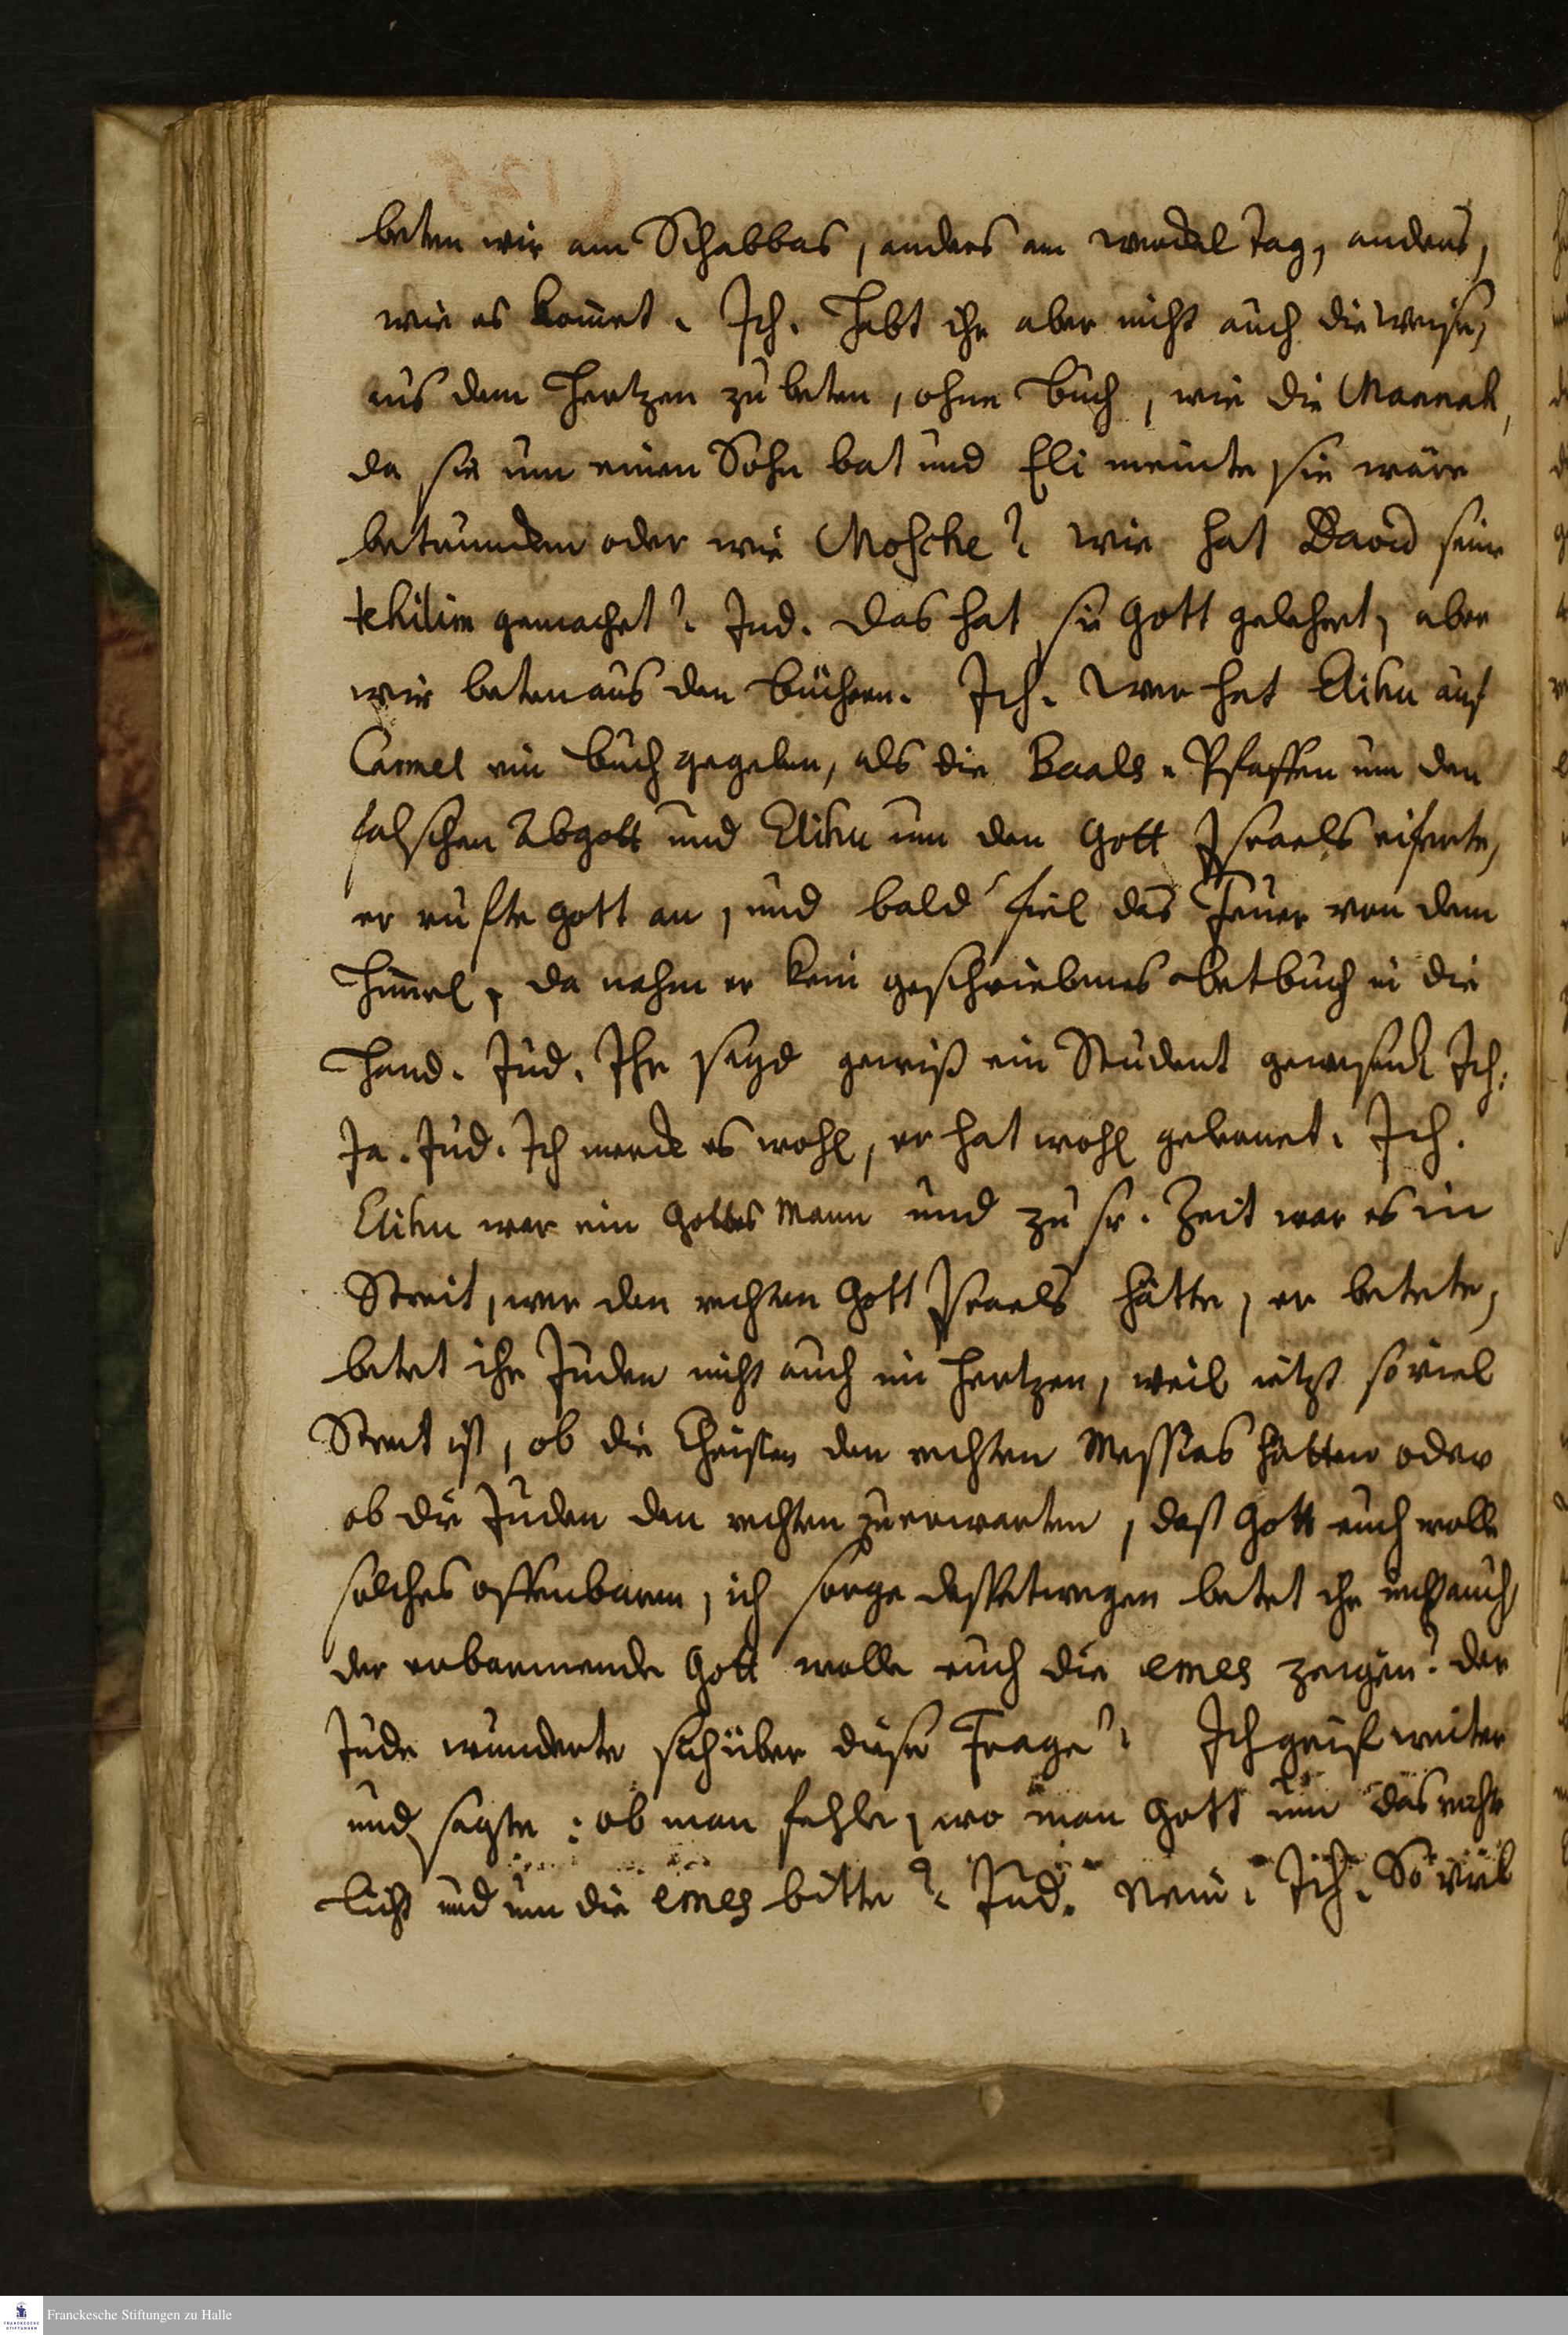 beten wir am Schabbas, anders am werckel Tag, anders,
wie es kom̅et. Ich. Habt ihr aber nicht auch die Weise,
aus dem Hertzen zu beten, ohne Buch, wie die Mannah,
da sie um einen Sohn bat und Eli meinte sie wäre
betruncken oder wie Mosche? Wie hat David seine
tehilim gemachet? Jud. Das hat sie Gott gelehret, aber
wir beten aus den Büchern. Ich. Wer hat Elihu auf
Carmel ein Buch gegeben, als die Baals-Pfaffen um den
falschen Abgott und Elihu um den Gott Israels eiferte,
er ruffte Gott an, und bald fiel das Feuer von dem
Him̅el, da nahm er kein geschriebenes Betbuch in die
Hand. Jud. Ihr seyd gewiß ein Student gewesen? Ich.
Ja. Jud. Ich mercke es wohl, er hat wohl gelernet. Ich.
Elihu war ein Gottes Mann und zu sr. Zeit war es in
Streit, wer den rechten Gott Israels hätte, er betete,
betet ihr Juden nicht auch im Hertzen, weil jetzt so viel
Streit ist, ob die Christen den rechten Messias hätten oder
ob die Juden den rechten zu erwarten, daß Gott euch wolle
solches offenbaren, ich sorge deßwegen betet ihr nicht auch,
der erbarmende Gott wolle euch die emes zeigen? Der
Jude wunderte sich über diese Frage? Ich grif weiter
und sagte: ob man fehle, wo man Gott um das rechte
Licht und um die emes bitte? Jud. Nein. Ich. So viel
Franckesche Stiftungen zu Halle